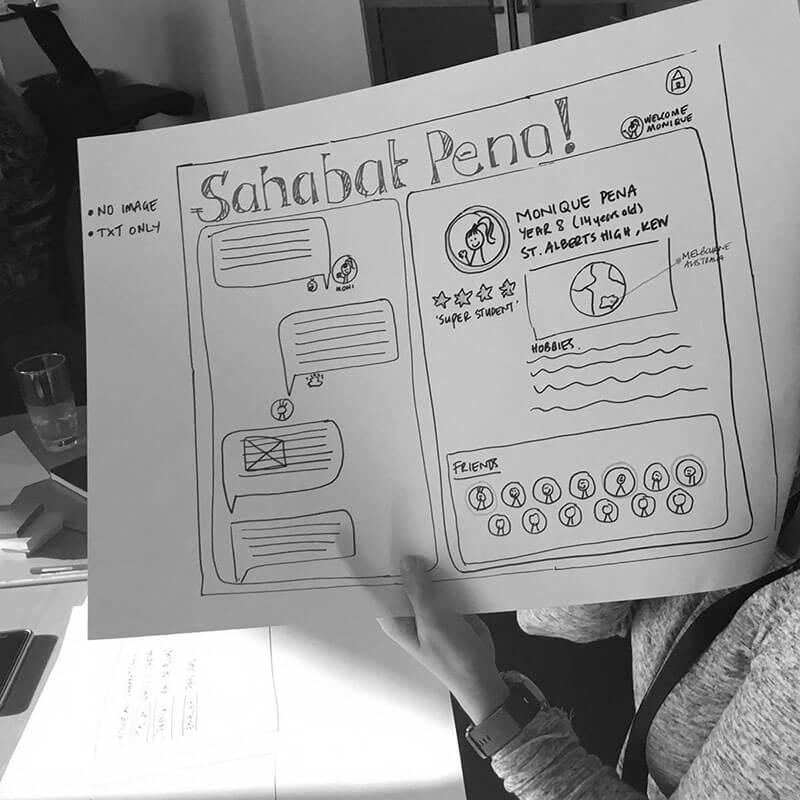 Sahabat Pena!
WELCOME
MONIQUE
• NO IMAGE
• TXT ONLY
MONI
MONIQUE PENA
YEAR 8 (14 years old)
ST. ALBERTS HIGH, KEW
MELBOURNE
AUSTRALIA
'SUPER STUDENT'
HOBBIES.
FRIENDS